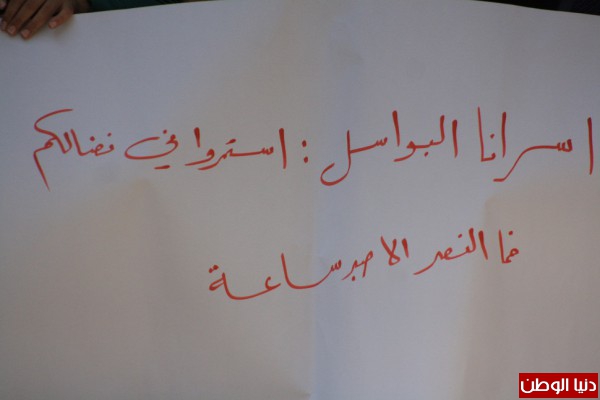 اسرانا البواسل : استمروا في نضالكم
فما النصر الا صبر ساعة
دنيا الوطن